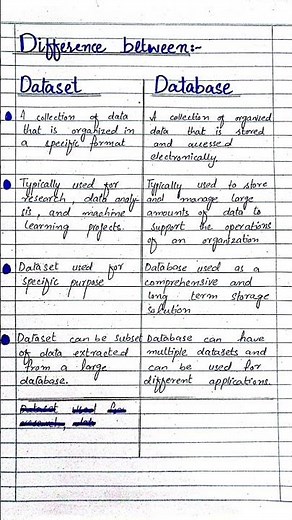 Difference between:-
Dataset
A collection of data
that is organized in
a specific format
Typically used for
research, data analy-
sis, and machine
learning projects.
Dataset used for
specific purpose
Dataset can be subset
of data extracted
from a large
database.
Dataset used for
research, data
Database
A collection of organized
data that is stored
and accessed
electronically
Typically used to store
and manage large
amounts of data to
support the operations
of an organization
Database used as a
comprehensive and
long term storage
solution
Database can have
multiple datasets and
can be used for
different applications.